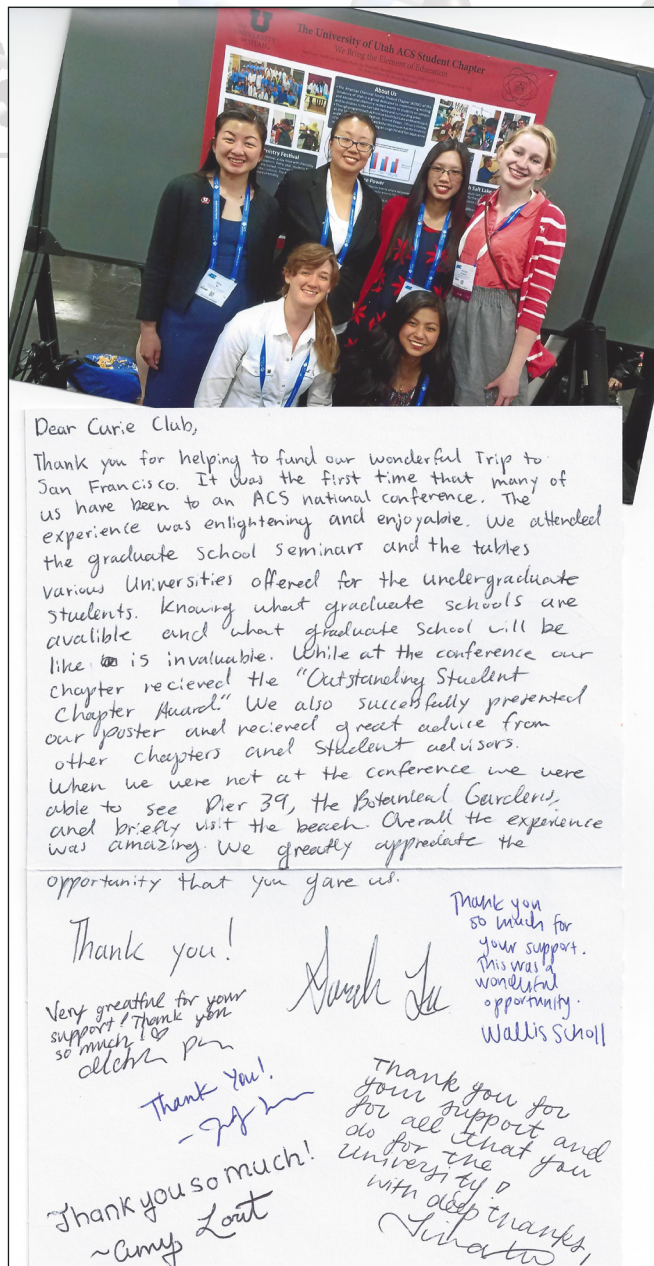 The University of Utah ACS Student Chapter
We Bring the Element of Education
About Us
Dear Curie Club,
Thank you for helping to fund our wonderful Trip to
San Francisco. It was the first time that many of
us have been to an ACS national conference. The
experience was enlightening and enjoyable. We attended
the graduate school seminars and the tables
various Universities offered for the undergraduate
students. Knowing what graduate schools are
avalible and what graduate school will be
like is invaluable. While at the conference our
chapter recieved the "Outstanding Student
Chapter Award." We also successfully presented
our poster and recieved great advice from
other chapters and student advisors.
When we were not at the conference we were
able to see Pier 39, the Botanical Gardens,
and briefly visit the beach. Overall the experience
was amazing. We greatly appreciate the
opportunity that you gave us.
Thank you!
Thank you
so much for
your support.
This was a
wonderful
opportunity.
Wallis Scholl
Sarah
Very greatful for your
support! Thank you
so much!
Thank You!
Thank you for
your support and
for all that you
do for the
University!
with deep thanks,
Tina
Thank you so much!
~Amy